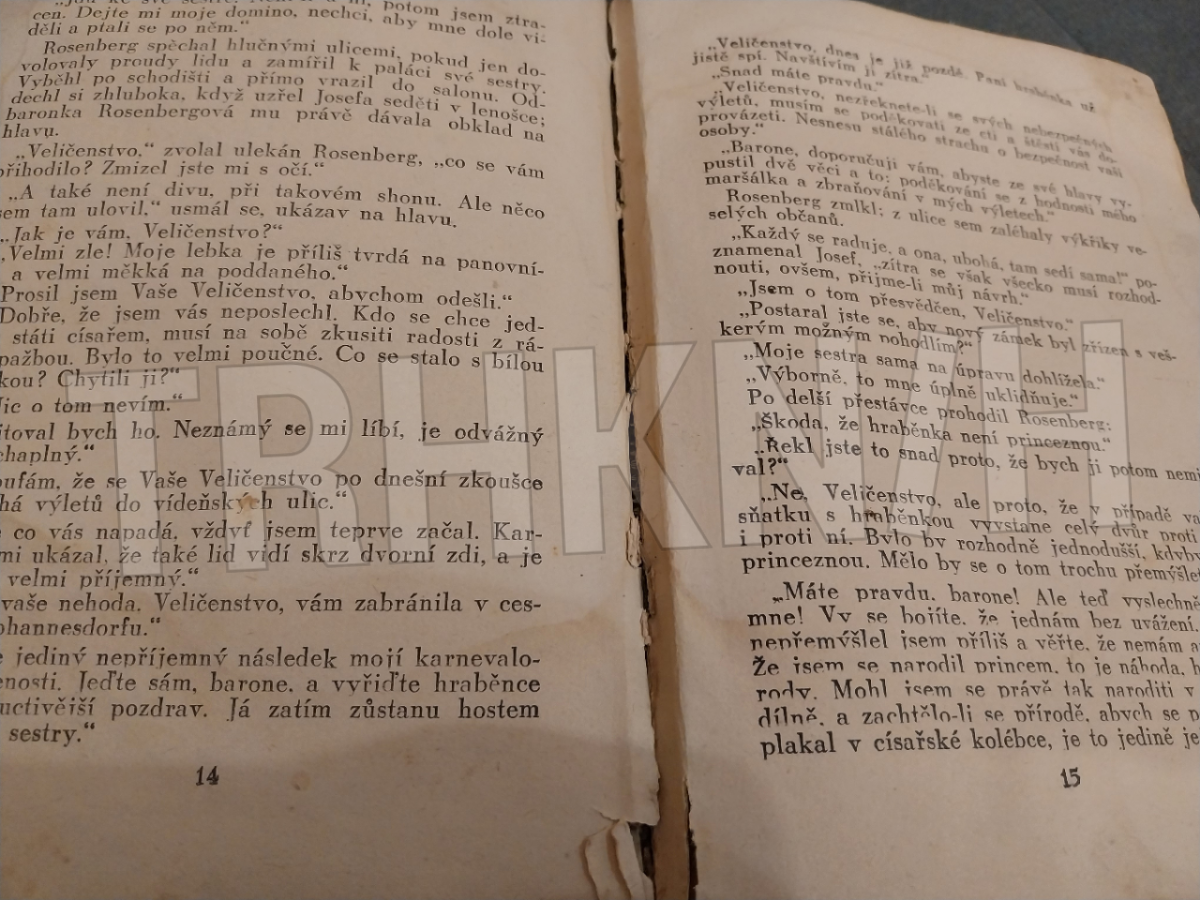 potom jsem ztra-
cen. Dejte mi moje domino, nechci, aby mne dole vi-
děli a ptali se po něm.“
Rosenberg spěchal hlučnými ulicemi, pokud jen do-
volovaly proudy lidu a zamířil k paláci své sestry.
Vyběhl po schodišti a přímo vrazil do salonu. Od-
dechl si zhluboka, když uzřel Josefa seděti v lenošce;
baronka Rosenbergová mu právě dávala obklad na
hlavu.
„Veličenstvo,“ zvolal ulekán Rosenberg, „co se vám
přihodilo? Zmizel jste mi s očí.“
„A také není divu, při takovém shonu. Ale něco
sem tam ulovil,“ usmál se, ukázav na hlavu.
„Jak je vám, Veličenstvo?“
„Velmi zle! Moje lebka je příliš tvrdá na panovní-
a velmi měkká na poddaného.“
Prosil jsem Vaše Veličenstvo, abychom odešli.“
Dobře, že jsem vás neposlechl. Kdo se chce jed-
státi císařem, musí na sobě zkusiti radosti z rá-
pažbou. Bylo to velmi poučné. Co se stalo s bílou
kou? Chytili ji?“
Nic o tom nevím.“
itoval bych ho. Neznámý se mi líbí, je odvážný
chaplný.“
oufám, že se Vaše Veličenstvo po dnešní zkoušce
há výletů do vídeňských ulic.“
co vás napadá, vždyť jsem teprve začal. Kar-
mi ukázal, že také lid vidí skrz dvorní zdi, a je
velmi příjemný.“
vaše nehoda, Veličenstvo, vám zabránila v ces-
ohannesdorfu.“
e jediný nepříjemný následek mojí karnevalo-
enosti. Jeďte sám, barone, a vyřiďte hraběnce
uctivější pozdrav. Já zatím zůstanu hostem
sestry.“
14
„Veličenstvo, dnes je již pozdě. Paní hraběnka už
jistě spí. Navštívím ji zítra.“
„Snad máte pravdu.“
„Veličenstvo, nezřeknete-li se svých nebezpečných
výletů, musím se poděkovati ze cti a štěstí vás do-
provázeti. Nesnesu stálého strachu o bezpečnost vaší
osoby.“
„Barone, doporučuji vám, abyste ze své hlavy vy-
pustil dvě věci a to: poděkování se z hodnosti mého
maršálka a zbraňování v mých výletech.“
Rosenberg zmlkl; z ulice sem zaléhaly výkřiky ve-
selých občanů.
„Každý se raduje, a ona, ubohá, tam sedí sama!“ po-
znamenal Josef, „zítra se však všecko musí rozhod-
nouti, ovšem, přijme-li můj návrh.“
„Jsem o tom přesvědčen, Veličenstvo.“
„Postaral jste se, aby nový zámek byl zřízen s veš-
kerým možným pohodlím?“
„Moje sestra sama na úpravu dohlížela.“
„Výborně, to mne úplně uklidňuje.“
Po delší přestávce prohodil Rosenberg:
„Škoda, že hraběnka není princeznou.“
„Řekl jste to snad proto, že bych ji potom nemi
val?“
„Ne, Veličenstvo, ale proto, že v případě va
sňatku s hraběnkou vyvstane celý dvůr proti
i proti ní. Bylo by rozhodně jednodušší, kdyby
princeznou. Mělo by se o tom trochu přemýšlet
„Máte pravdu, barone! Ale teď vyslechně
mne! Vy se bojíte, že jednám bez uvážení.
nepřemýšlel jsem příliš a věřte, že nemám a
Že jsem se narodil princem, to je náhoda, h
rody. Mohl jsem se právě tak naroditi v
dílně, a zachtělo-li se přírodě, abych se p
plakal v císařské kolébce, je to jedině je
15
TRHKNIH